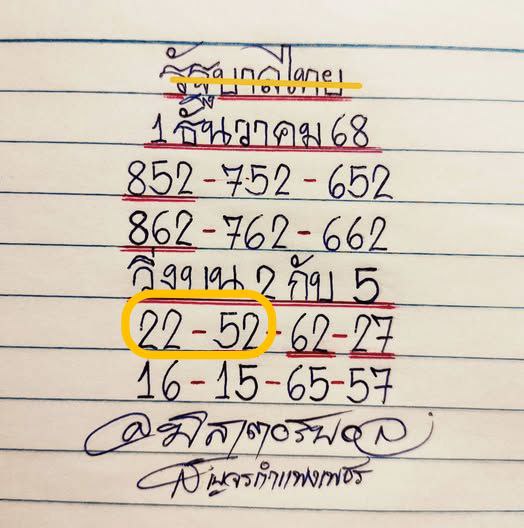 รัฐบาลไทย
1 ธันวาคม 68
852-752-652
862-762-662
วิ่งบน 2 กับ 5
22-52-62-27
16-15-65-57
สัญจรกำแพงเพชร